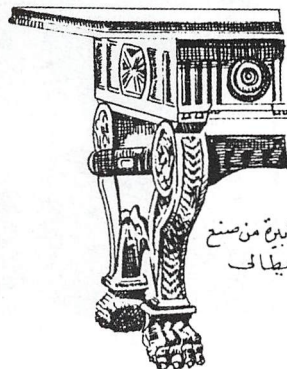 بيرة من صنع
يطالى